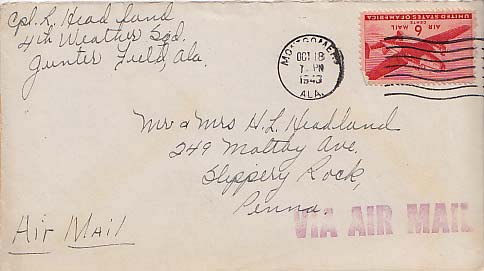 Cpl. R. Headland
4th Weather Sqd.
Gunter Field, Ala.
MONTGOMERY
OCT 18
PM
1943
ALA.
UNITED STATES OF AMERICA
6 CENTS
AIR MAIL
Mr & Mrs H. L. Headland
249 Maltby Ave.
Slippery Rock,
Penna.
Air Mail
VIA AIR MAIL